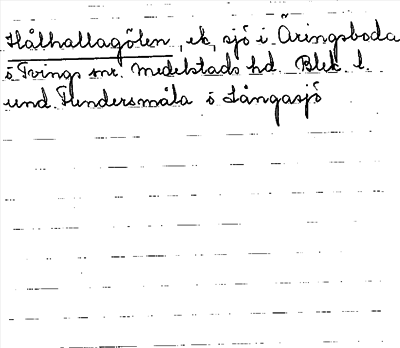 Hålhallagölen, ek, sjö i Äringsboda
ö Tvings snr. Medelstads hd. Blek. l.
und. Flundersmåla ö Långasjö